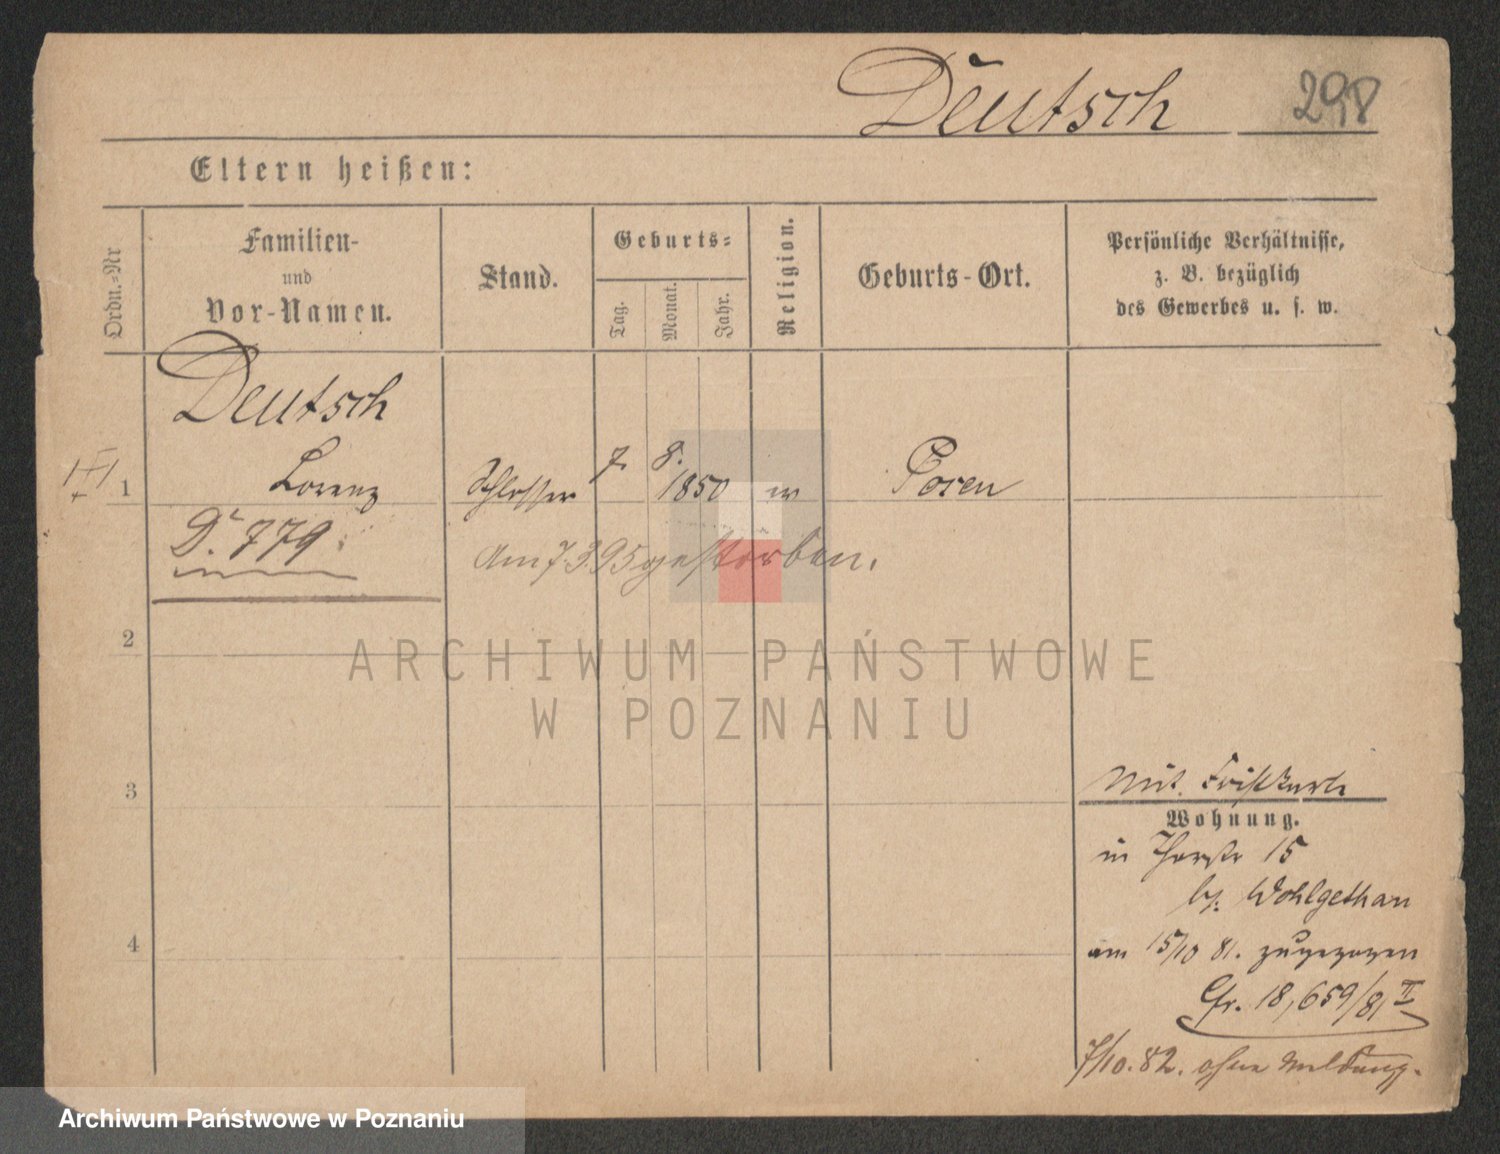 Deutsch 298
Eltern heißen:
Ordn.-Nr
Familien-
und
Vor-Namen.
Stand.
Geburts-
Tag.
Monat.
Jahr.
Religion.
Geburts-Ort.
Persönliche Verhältnisse,
z. B. bezüglich
des Gewerbes u. s. w.
Deutsch
III 1 Lorenz Schlosser 7. 8. 1850 Posen
D. 779.
Am 7.3.95 gestorben.
2
ARCHIWUM PAŃSTWOWE
W POZNANIU
3
Mit
Wohnung.
in Thorstr 15
bei Wohlgethan
4
am 15/10 81. zugezogen
Cfr. 18,659/81 II
7/10.82. ohne Meldung.
Archiwum Państwowe w Poznaniu